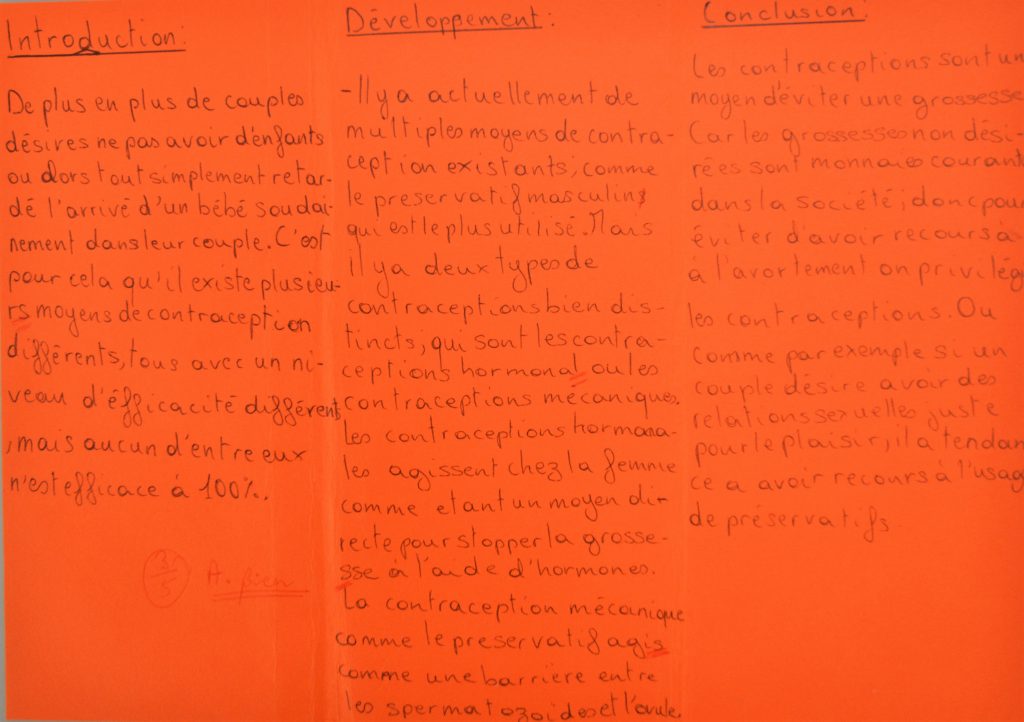 Introduction:
De plus en plus de couples
désires ne pas avoir d'enfants
ou alors tout simplement retar-
dé l'arrivé d'un bébé soudai-
nement dans leur couple. C'est
pour cela qu'il existe plusieu-
rs moyens de contraception
différents, tous avec un ni-
veau d'éfficacité différent
, mais aucun d'entre eux
n'est efficace à 100%.
3/5 A. bien
Développement:
- Il y a actuellement de
multiples moyens de contra-
ception existants; comme
le preservatif masculin
qui est le plus utilisé. Mais
il y a deux types de
contraceptions bien dis-
tincts, qui sont les contra-
ceptions hormonal ou les
contraceptions mécaniques.
Les contraceptions hormona-
les agissent chez la femme
comme etant un moyen di-
recte pour stopper la grosse-
sse à l'aide d'hormones.
La contraception mécanique
comme le preservatif agis
comme une barrière entre
les spermatozoides et l'ovule.
Conclusion:
Les contraceptions sont un
moyen d'éviter une grossesse
Car les grossesses non dési-
rées sont monnaies courant
dans la société; donc pour
éviter d'avoir recours à
à l'avortement on privilég
les contraceptions. Ou
comme par exemple si un
couple désire avoir des
relations sexuelles juste
pour le plaisir, il a tendan
ce a avoir recours à l'usag
de préservatifs